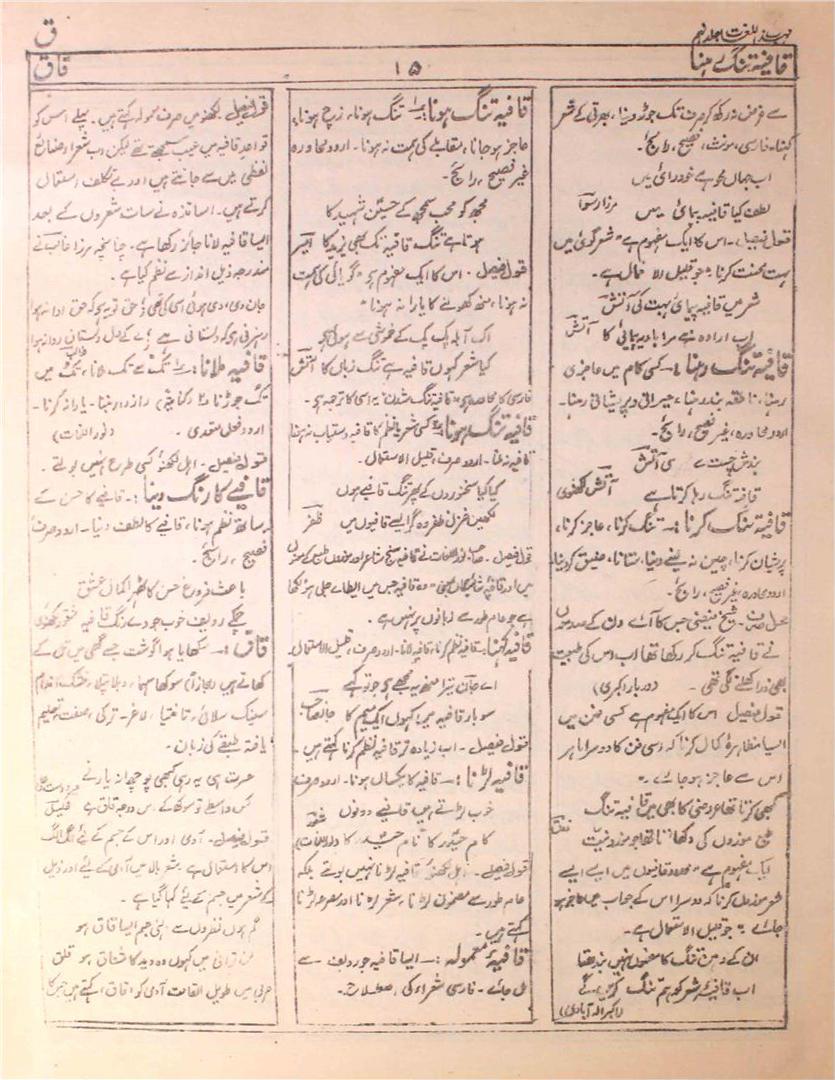 مہذب اللغات جلد نہم
ق
قافیہ تنگ رہنا
۱۵
قاق
سے غرض نہ رکھ کر صرف تک جوڑ دینا، بھرتی کے شعر
کہنا۔ فارسی، مونث، فصیح، رائج۔
اب جہاں محو ہے خود رائی میں
لطف کیا قافیہ پیمائی میں مرزا رسوا
قول فیصل۔ اس کا ایک مفہوم ہے "شعر گوئی میں
بہت محنت کرنا" جو قلیل الاستعمال ہے۔
شعر میں قافیہ پیمائی بہت کی آتش
اب ارادہ ہے مرا بادیہ پیمائی کا آتش
قافیہ تنگ رہنا :۔ کسی کام میں عاجزی
رہنا، ناطقہ بند رہنا، حیرانی و پریشانی رہنا۔
اردو محاورہ، غیر فصیح، رائج۔
بندش چست سے آتش
قافیہ تنگ رہا کرتا ہے آتش لکھنوی
قافیہ تنگ کرنا :۔ تنگ کرنا، عاجز کرنا،
پریشان کرنا، چین نہ لینے دینا، ستانا، ضیق کر دینا،
اردو محاورہ، غیر فصیح، رائج۔
شیخ فیضی جس کا آئے دن کے صدموں
نے قافیہ تنگ کر رکھا تھا اب اس کی طبیعت
بھی ذرا کھلنے لگی تھی۔ (دربار اکبری)
قول فیصل اس کا ایک مفہوم ہے کسی فن میں
ایسا مظاہرۂ کمال کرنا کہ اسی فن کا دوسرا ماہر
اس سے عاجز ہو جائے۔
کبھی کرتا تھا عروضی کا بھی میں قافیہ تنگ
موزوں کی دکھاتا تھا جو موزونیت
ایک مفہوم ہے "محدود قافیوں میں ایسے ایسے
شعر موزوں کرنا کہ دوسرا اس کے جواب میں عاجز ہو
جائے" جو قلیل الاستعمال ہے۔
ان کے دہن تنگ کا مضموں نہیں بندھتا
اب قافیۂ شعر کو ہم تنگ کریں گے
(اکبر الہ آبادی)
قافیہ تنگ ہونا :۔ تنگ ہونا، زچ ہونا،
عاجز ہو جانا، مقابلے کی ہمت نہ ہونا۔ اردو محاورہ
غیر فصیح، رائج۔
مجھ کو محب سمجھ کے حسین شہید کا
ہوتا ہے تنگ قافیہ تک بھی یزید کا اسیر
قول فیصل۔ اس کا ایک مفہوم ہے "گویائی کی ہمت
نہ ہونا، منھ کھولنے کا یارا نہ ہونا"
اک آبلہ
کیا شعر کہوں قافیہ ہے تنگ زباں کا آتش
فارسی کا محاورہ "قافیہ تنگ شدن" یہ اسی کا ترجمہ ہے۔
قافیہ تنگ ہونا :۔ کسی شعر یا نظم کا قافیہ دستیاب نہ ہونا
قافیہ نہ ملنا۔ اردو صرف، قلیل الاستعمال۔
کیا کیا سخنوروں کے بھی تنگ قافیے ہوں
لکھیں غزل ظفر وہ گر ایسے قافیوں میں ظفر
قول فیصل۔ صاحب نور اللغات نے قافیہ سنج شاعر اور موزوں طبع کے معنوں
میں اور قافیۂ شائگان بمعنی "وہ قافیہ جس میں ایطائے جلی ہو" لکھا
ہے جو عام طور سے زبانوں پر نہیں ہے۔
قافیہ کہنا :۔ قافیہ نظم کرنا، قافیہ لانا۔ اردو صرف، قلیل الاستعمال۔
اے جان تیرا منھ ہے مجھے ہجو تو کہے
سو بار قافیہ میں کہوں ایک میم کا جان صاحب
قول فیصل۔ اب زیادہ تر قافیہ نظم کرنا کہتے ہیں۔
قافیہ لڑنا :۔ قافیہ کا یکساں ہونا۔ اردو صرف
خوب لڑتے ہیں قافیے دونوں شعور
کام حیدر کا نام حیدر کا (نور اللغات)
قول فیصل۔ اہل لکھنؤ قافیہ لڑنا نہیں بولتے بلکہ
عام طور سے مضمون لڑنا، شعر لڑنا اور مصرعہ لڑنا
کہتے ہیں۔
قافیۂ معمولہ :۔ ایسا قافیہ جو ردیف سے
مل جائے۔ فارسی شعراء کی اصطلاح۔
قول فیصل۔ لکھنؤ میں صرف معمولہ کہتے ہیں۔ پہلے اس کو
قواعد قافیہ میں عیب سمجھتے تھے لیکن اب شعراء صنائع
لفظی میں سے جانتے ہیں اور بے تکلف استعمال
کرتے ہیں۔ اساتذہ نے سات شعروں کے بعد
ایسا قافیہ لانا جائز رکھا ہے۔ چنانچہ مرزا غالب نے
مندرجہ ذیل انداز سے نظم کیا ہے۔
جان دی، دی ہوئی اسی کی تھی / حق تو یہ ہے کہ حق ادا نہ ہوا
رہزنی ہے کہ دلستانی ہے / لے کے دل دلستاں روانہ ہوا غالب
قافیہ ملانا :۔ تک سے تک ملانا، تک میں
تک جوڑنا (کنایۃً) رازدار بننا۔ یارانہ کرنا۔
اردو فعل متعدی۔ (نور اللغات)
قول فیصل۔ اہل لکھنؤ کسی طرح نہیں بولتے۔
قافیے کا رنگ دینا :۔ قافیے کا حسن کے
ساتھ نظم ہونا، قافیے کا لطف دینا۔ اردو صرف
فصیح، رائج۔
باعث فروغ حسن کا ٹھہرا کمال عشق
چمکے ردیف خوب جو دے رنگ قافیہ
قاق :۔ سکھایا ہوا گوشت جسے گھی میں تل کے
کھاتے ہیں (مجازاً) سوکھا سہما، دبلا پتلا، خشک اندام
سینک سلائی، تانتیا، لاغر۔ ترکی، صفت تعلیم
یافتہ طبقے کی زبان۔
حسرت ہی یہ رہی کبھی پوچھا نہ یار نے
کس واسطے تو سوکھ کے اس درجہ قاق ہے
قول فیصل۔ آدمی اور اس کے جسم کے لئے الگ الگ
اس کا استعمال ہے۔ شعر بالا میں آدمی کے لئے اور ذیل
کے شعر میں جسم کے لئے کہا گیا ہے۔
گم ہوں نظروں سے ابھی جسم ایسا قاق ہو
لن ترانی میں کہوں وہ دید کا مشتاق ہو قلق
عربی میں طویل القامت آدمی کو قاق کہتے ہیں جس کا